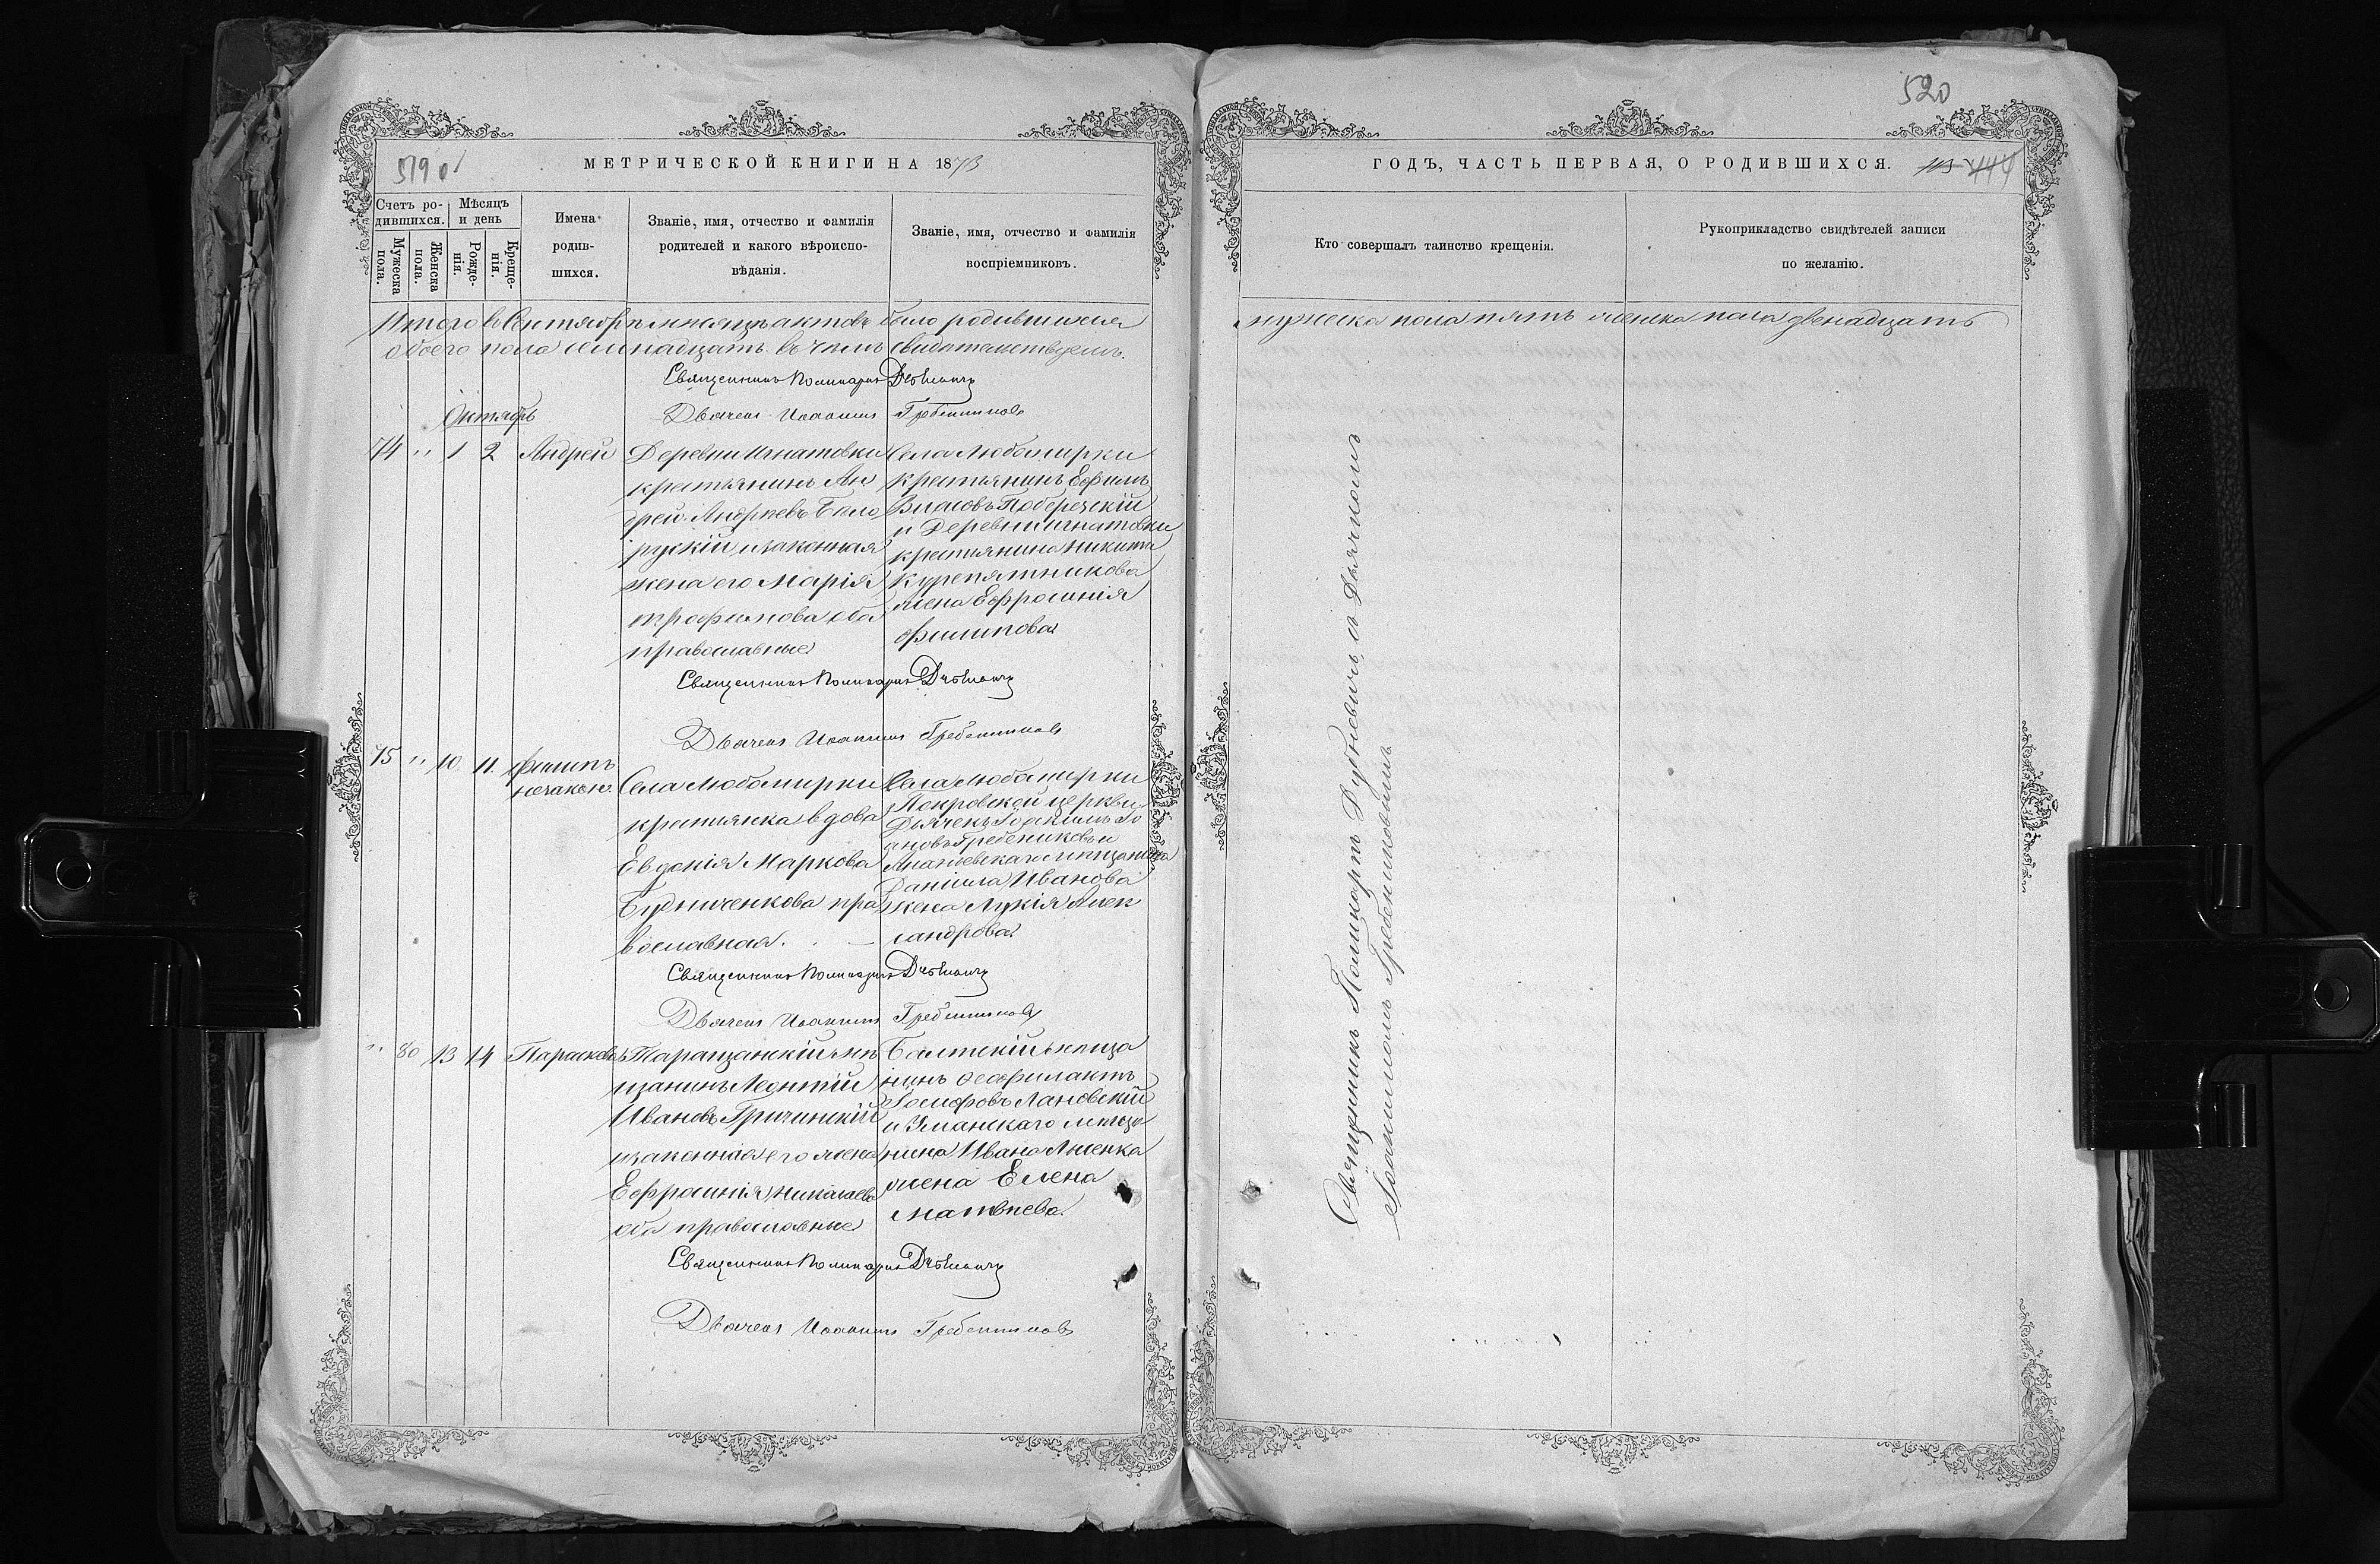 519 об
МЕТРИЧЕСКОЙ КНИГИ НА 1873
Счетъ ро-
дившихся.
Мужеска
пола.
Женска
пола.
Мѣсяцъ
и день
Рожде-
нія.
Креще-
нія.
Имена
родив-
шихся.
Званіе, имя, отчество и фамилія
родителей и какого вѣроиспо-
вѣданія.
Званіе, имя, отчество и фамилія
воспріемниковъ.
Итого въ Сентябрѣ мѣсяцѣ актовъ было родившихся
обоего пола семнадцать въ чемъ свидѣтельствуемъ.
Священникъ Поликарпъ
Дьячекъ Іоакимъ Гребенниковъ
Октябрь
74 " 1 2 Андрей
Деревни Игнатовки
крестьянинъ Ан
дрей Андреевъ Бѣло
рускій и законная
жена его Марія
Трофимова оба
православные
Села Любомирки
крестьянинъ Ефимъ
Власовъ Поберезскій
и Деревни Игнатовки
крестьянина Никита
Курепятникова
жена Ефросинія
Филипова
Священникъ Поликарпъ
Дьячекъ Іоакимъ Гребенниковъ
75 " 10 11. Филипъ
незакон.
Села Любомирки
крестьянка вдова
Евдокія Маркова
Будниченкова пра
вославная.
Села Любомирки
Покровской церкви
Дьячекъ Іоакимъ Іо
ановъ Гребениковъ и
Ананьевскаго мещанина
Даніила Иванова
жена Лукія Алек
сандрова
Священникъ Поликарпъ
Дьячекъ Іоакимъ Гребенниковъ
" 80 13 14 Параскева
Таращанскій мѣ
щанинъ Леонтій
Ивановъ Гричинскій
и законная его жена
Ефросинія Николаева
оба православные
Балтскій мѣща
нинъ Феофилактъ
Іосифовъ Лановскій
и Уманскаго мещa
нина Ивана Лисенка
жена Елена
Матвѣева
Священникъ Поликарпъ
Дьячекъ Іоакимъ Гребенниковъ
520
ГОДЪ, ЧАСТЬ ПЕРВАЯ, О РОДИВШИХСЯ.
113 444
Кто совершалъ таинство крещенія.
Рукоприкладство свидѣтелей записи
по желанію.
мужеска пола пять женска пола двенадцать
Священникъ Поликарпъ Дубневичъ съ Дьячкомъ
Іоакимомъ Гребенниковымъ